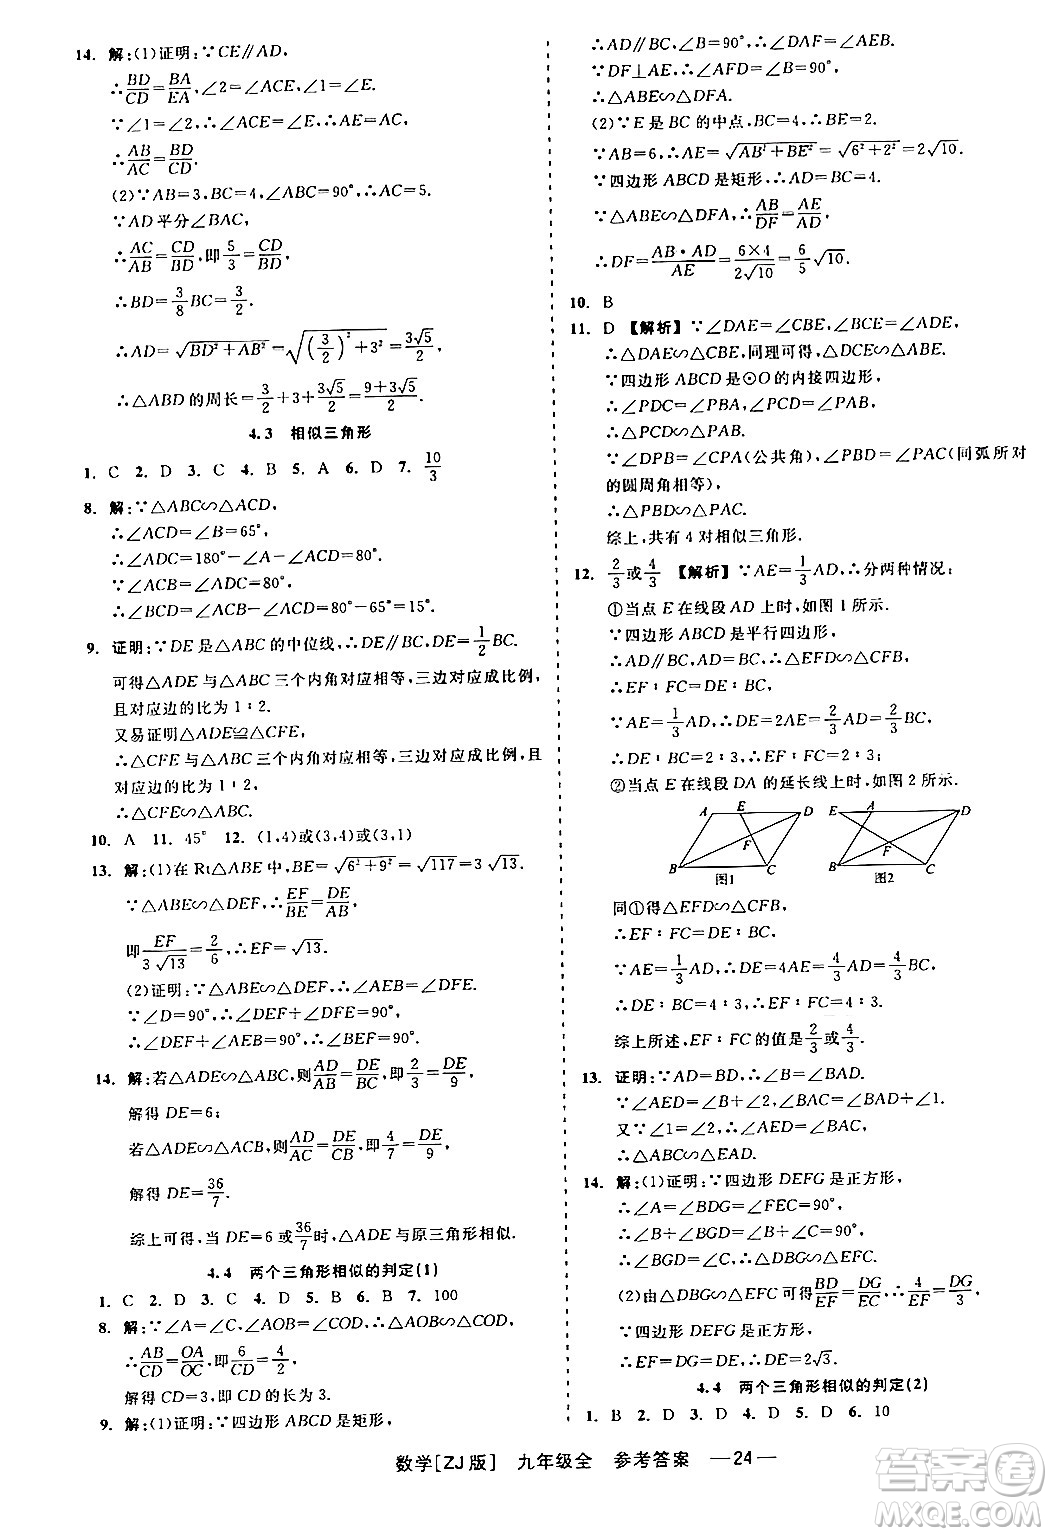 14. 解:(1)证明:∵CE∥AD,
∴BD/CD=BA/EA,∠2=∠ACE,∠1=∠E.
∵∠1=∠2,∴∠ACE=∠E,∴AE=AC,
∴AB/AC=BD/CD.
(2)∵AB=3,BC=4,∠ABC=90°,∴AC=5.
∵AD平分∠BAC,
∴AC/AB=CD/BD,即5/3=CD/BD,
∴BD=3/8BC=3/2.
∴AD=√(BD²+AB²)=√((3/2)²+3²)=3√5/2.
∴△ABD的周长=3/2+3+3√5/2=(9+3√5)/2.
4.3 相似三角形
1. C 2. D 3. C 4. B 5. A 6. D 7. 10/3
8. 解:∵△ABC∽△ACD,
∴∠ACD=∠B=65°,
∴∠ADC=180°-∠A-∠ACD=80°.
∴∠ACB=∠ADC=80°,
∴∠BCD=∠ACB-∠ACD=80°-65°=15°.
9. 证明:∵DE是△ABC的中位线,∴DE∥BC,DE=1/2BC.
可得△ADE与△ABC三个内角对应相等,三边对应成比例,
且对应边的比为1∶2.
又易证明△ADE≌△CFE,
∴△CFE与△ABC三个内角对应相等,三边对应成比例,且
对应边的比为1∶2,
∴△CFE∽△ABC.
10. A 11. 45° 12. (1,4)或(3,4)或(3,1)
13. 解:(1)在Rt△ABE中,BE=√(6²+9²)=√117=3√13.
∵△ABE∽△DEF,∴EF/BE=DE/AB,
即EF/3√13=2/6,∴EF=√13.
(2)证明:∵△ABE∽△DEF,∴∠AEB=∠DFE.
∵∠D=90°,∴∠DEF+∠DFE=90°,
∴∠DEF+∠AEB=90°,∴∠BEF=90°.
14. 解:若△ADE∽△ABC,则AD/AB=DE/BC,即2/3=DE/9,
解得DE=6;
若△ADE∽△ACB,则AD/AC=DE/CB,即4/7=DE/9,
解得DE=36/7.
综上可得,当DE=6或36/7时,△ADE与原三角形相似.
4.4 两个三角形相似的判定(1)
1. C 2. D 3. C 4. D 5. B 6. D 7. 100
8. 解:∵∠A=∠C,∠AOB=∠COD,∴△AOB∽△COD,
∴AB/CD=OA/OC,∴6/CD=4/2,
解得CD=3,即CD的长为3.
9. 解:(1)证明:∵四边形ABCD是矩形,
∴AD∥BC,∠B=90°,∴∠DAF=∠AEB.
∵DF⊥AE,∴∠AFD=∠B=90°,
∴△ABE∽△DFA.
(2)∵E是BC的中点,BC=4,∴BE=2.
∵AB=6,∴AE=√(AB²+BE²)=√(6²+2²)=2√10.
∵四边形ABCD是矩形,∴AD=BC=4.
∵△ABE∽△DFA,∴AB/DF=AE/AD,
∴DF=AB·AD/AE=6×4/2√10=6/5√10.
10. B
11. D 【解析】∵∠DAE=∠CBE,∠BCE=∠ADE,
∴△DAE∽△CBE,同理可得,△DCE∽△ABE.
∵四边形ABCD是⊙O的内接四边形,
∴∠PDC=∠PBA,∠PCD=∠PAB,
∴△PCD∽△PAB.
∵∠DPB=∠CPA(公共角),∠PBD=∠PAC(同弧所对
的圆周角相等),
∴△PBD∽△PAC.
综上,共有4对相似三角形.
12. 2/3或4/3 【解析】∵AE=1/3AD,∴分两种情况:
①当点E在线段AD上时,如图1所示.
∵四边形ABCD是平行四边形,
∴AD∥BC,AD=BC,∴△EFD∽△CFB,
∴EF∶FC=DE∶BC,
∵AE=1/3AD,∴DE=2AE=2/3AD=2/3BC,
∴DE∶BC=2∶3,∴EF∶FC=2∶3;
②当点E在线段DA的延长线上时,如图2所示.
A E D
F
B C
图1
E A D
F
B C
图2
同①得△EFD∽△CFB,
∴EF∶FC=DE∶BC,
∵AE=1/3AD,∴DE=4AE=4/3AD=4/3BC,
∴DE∶BC=4∶3,∴EF∶FC=4∶3.
综上所述,EF∶FC的值是2/3或4/3.
13. 证明:∵AD=BD,∴∠B=∠BAD.
∵∠AED=∠B+∠2,∠BAC=∠BAD+∠1,
又∵∠1=∠2,∴∠AED=∠BAC,
∴△ABC∽△EAD.
14. 解:(1)证明:∵四边形DEFG是正方形,
∴∠A=∠BDG=∠FEC=90°,
∴∠B+∠BGD=∠B+∠C=90°,
∴∠BGD=∠C,∴△DBG∽△EFC.
(2)由△DBG∽△EFC可得BD/EF=DG/EC,∴4/EF=DG/3,
∵四边形DEFG是正方形,
∴EF=DG=DE=2√3.
4.4 两个三角形相似的判定(2)
1. B 2. D 3. D 4. D 5. C 6. 10
数学[ZJ版] 九年级全 参考答案 —24—
答案圈
MXQE.COM